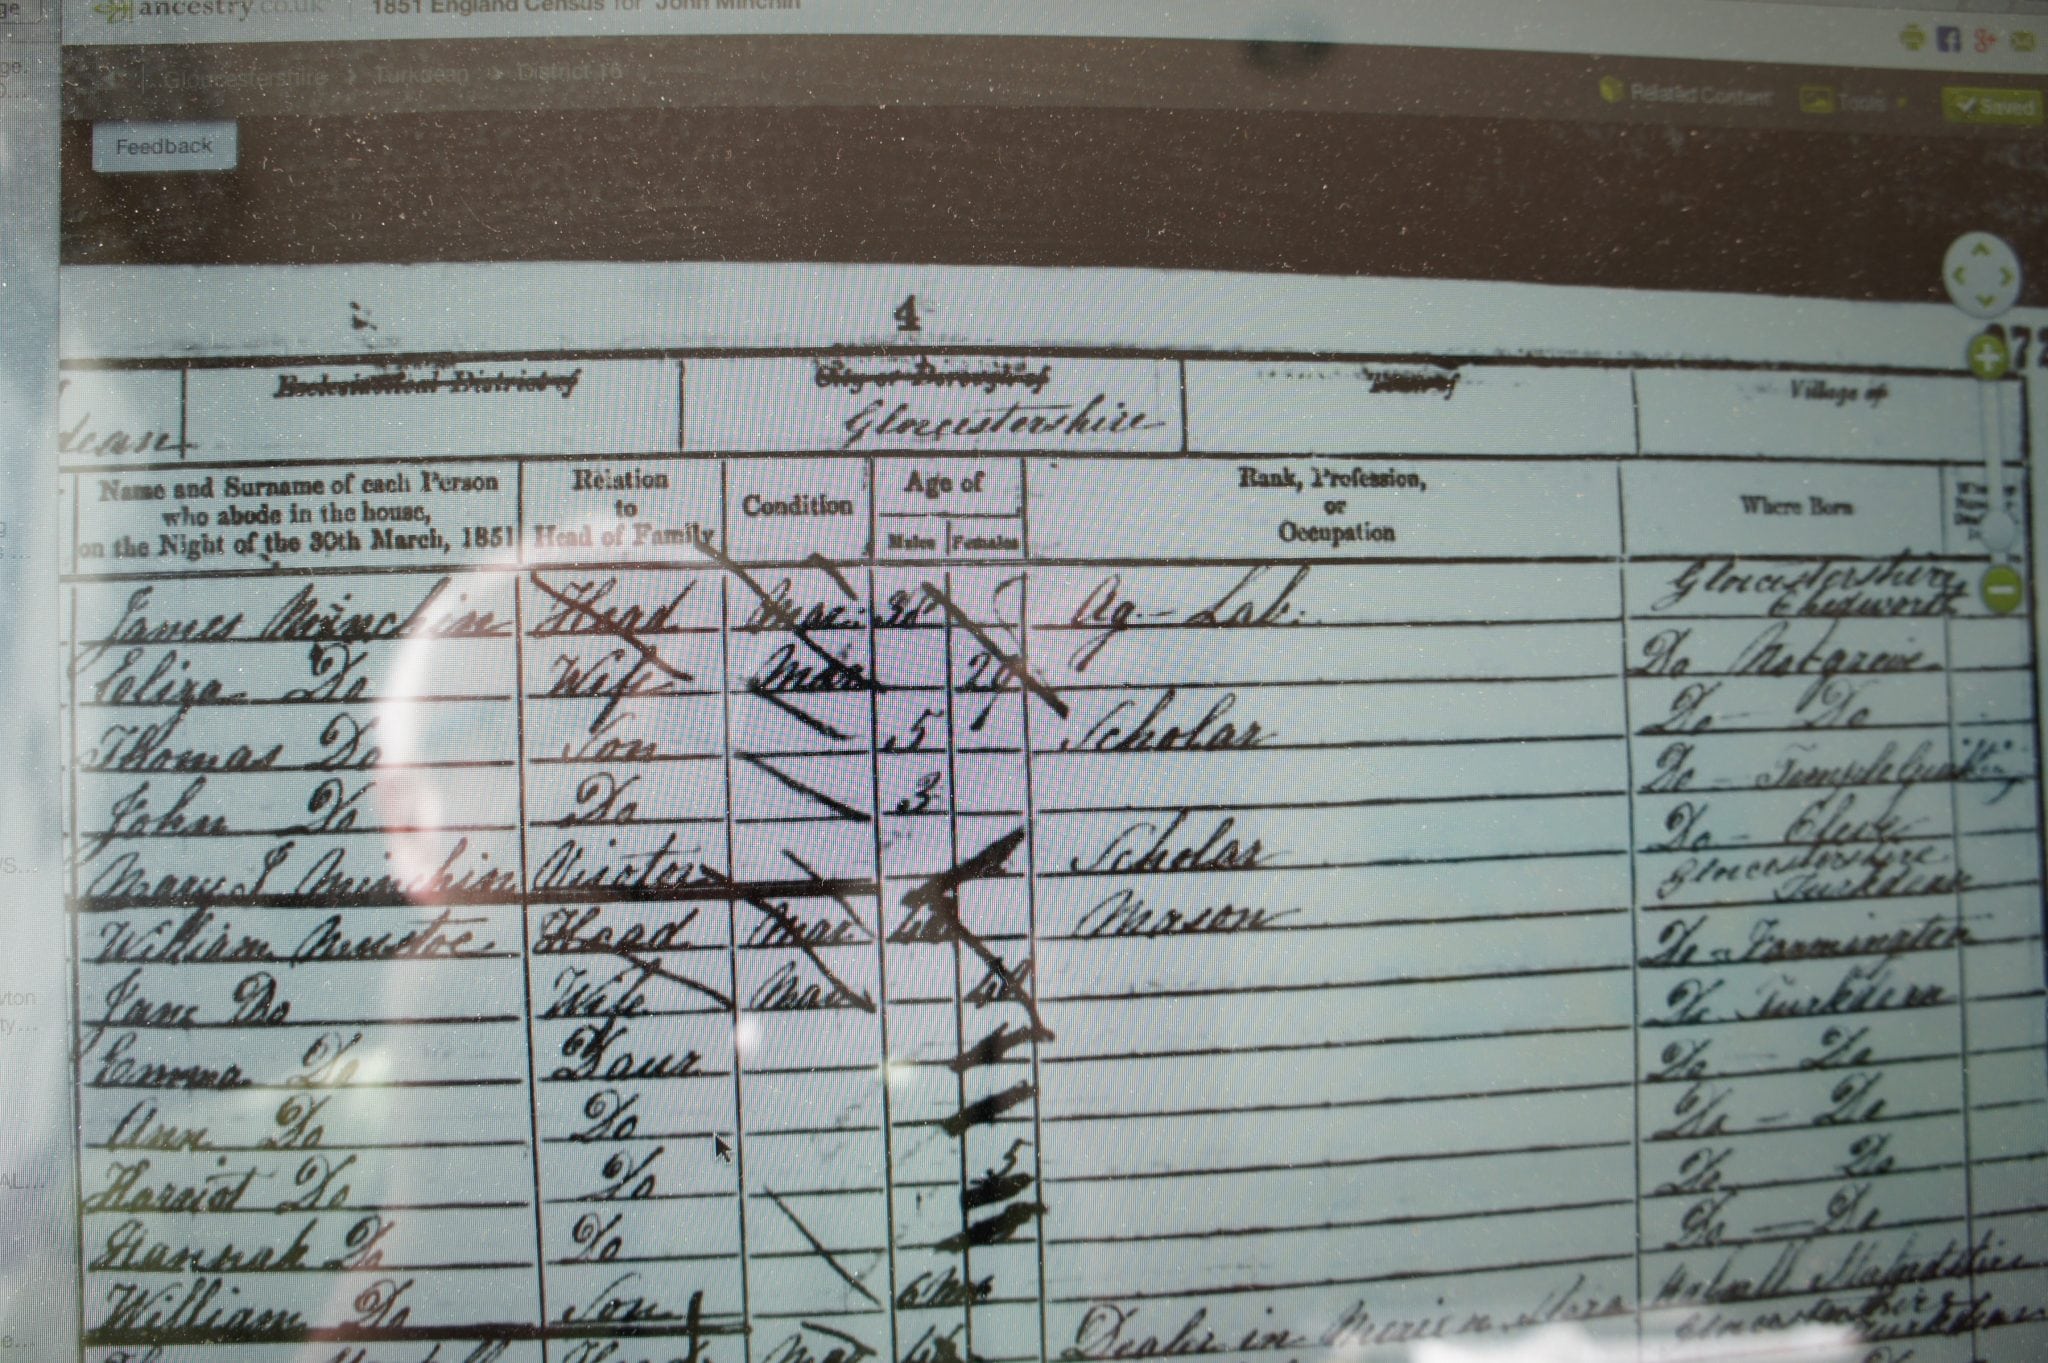 ge ancestry.co.uk 1851 England Census for John Minchin
ge.
Gloucestershire > Turkdean > District 16
Related Content Tools Saved
Feedback
4
72
Ecclesiastical District of City or Borough of Town of Village of
dean Gloucestershire
Name and Surname of each Person who abode in the house, on the Night of the 30th March, 1851 Relation to Head of Family Condition Age of Males Females Rank, Profession, or Occupation Where Born
James Minchin Head Mar. Ag. Lab. Gloucestershire Chedworth
Eliza Do Wife Mar 29 Do Notgrove
Thomas Do Son 5 Scholar Do Do
John Do Do 3 Do Temple Guiting
Mary J Minchin Visitor Scholar Do
William Mustoe Head Mar Mason Gloucestershire Turkdean
Jane Do Wife Mar Do Farmington
Emma Do Daur Do Turkdean
Ann Do Do Do Do
Harriot Do Do 5 Do Do
Hannah Do Do Do Do
William Do Son 6 Mos Do Do
Head Mar Dealer in